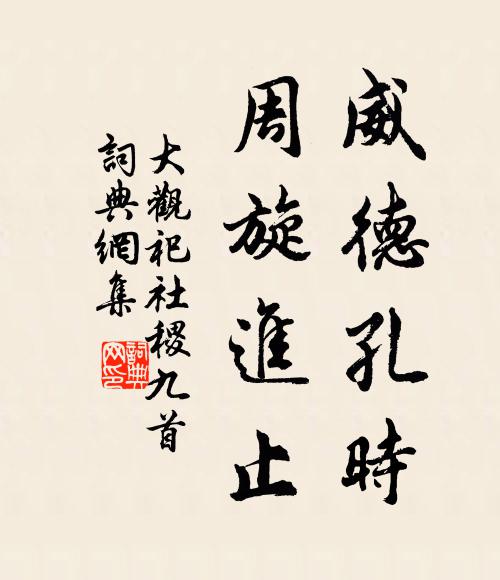 威德孔時
周旋進止
大觀祀社稷九首
詞典網集
詞典網印